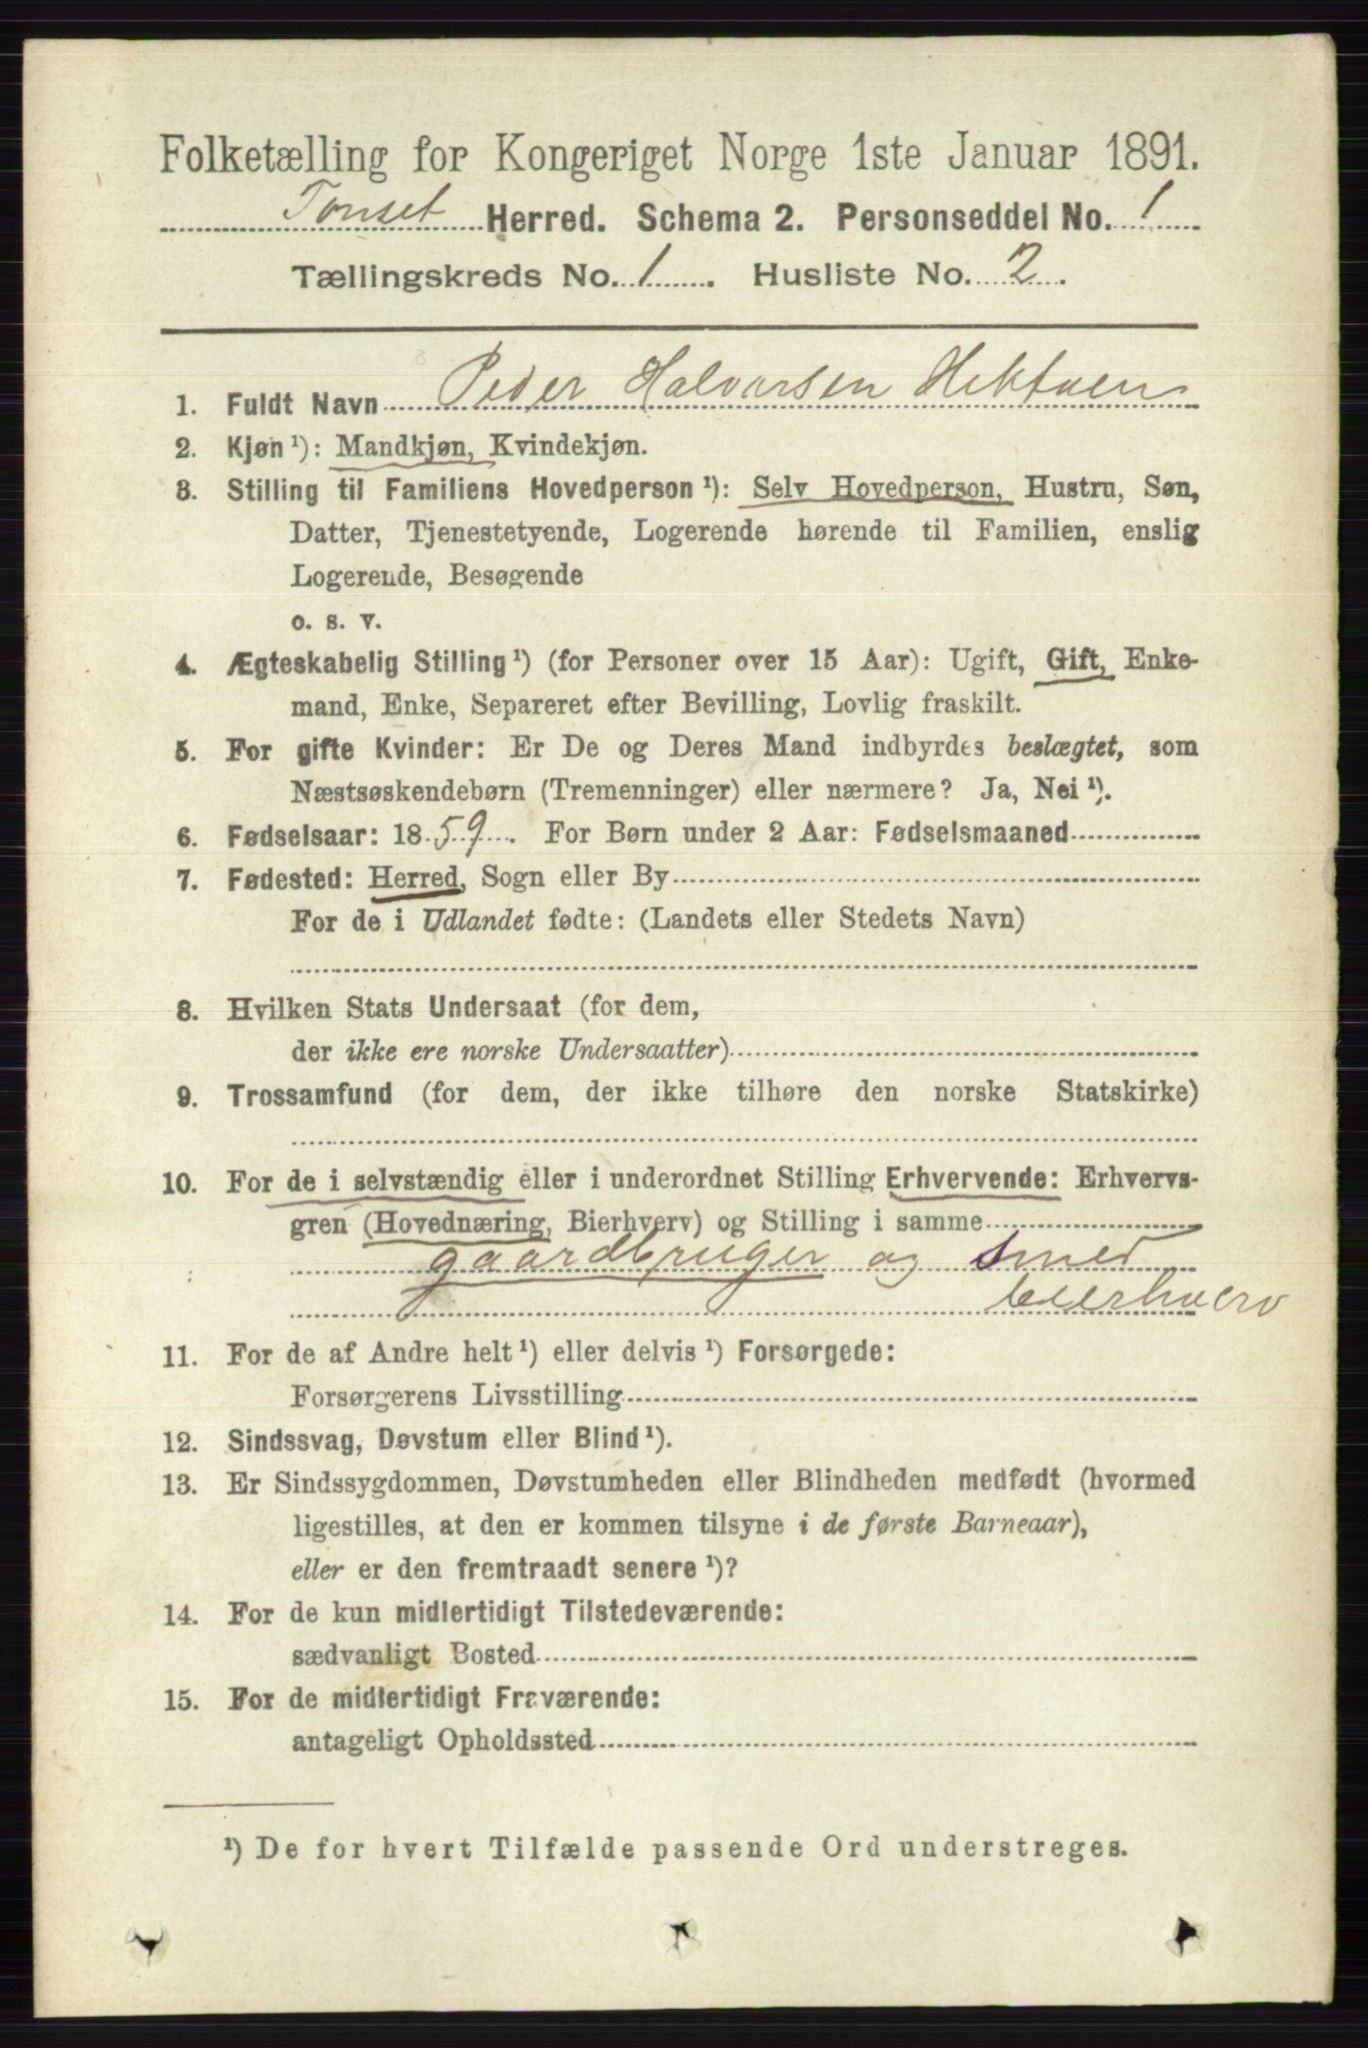 Folketælling for Kongeriget Norge 1ste Januar 1891.
Tønset Herred. Schema 2. Personseddel No. 1
Tællingskreds No. 1. Husliste No. 2.
1. Fuldt Navn Peder Halvorsen Hektoen
2. Kjøn ¹): Mandkjøn, Kvindekjøn.
3. Stilling til Familiens Hovedperson ¹): Selv Hovedperson, Hustru, Søn,
Datter, Tjenestetyende, Logerende hørende til Familien, enslig
Logerende, Besøgende
o. s. v.
4. Ægteskabelig Stilling ¹) (for Personer over 15 Aar): Ugift, Gift, Enke-
mand, Enke, Separeret efter Bevilling, Lovlig fraskilt.
5. For gifte Kvinder: Er De og Deres Mand indbyrdes beslægtet, som
Næstsøskendebørn (Tremenninger) eller nærmere? Ja, Nei ¹).
6. Fødselsaar: 1859. For Børn under 2 Aar: Fødselsmaaned
7. Fødested: Herred, Sogn eller By
For de i Udlandet fødte: (Landets eller Stedets Navn)
8. Hvilken Stats Undersaat (for dem,
der ikke ere norske Undersaatter)
9. Trossamfund (for dem, der ikke tilhøre den norske Statskirke)
10. For de i selvstændig eller i underordnet Stilling Erhvervende: Erhvervs-
gren (Hovednæring, Bierhverv) og Stilling i samme
gaardbruger og smed
bierhverv
11. For de af Andre helt ¹) eller delvis ¹) Forsørgede:
Forsørgerens Livsstilling
12. Sindssvag, Døvstum eller Blind ¹).
13. Er Sindssygdommen, Døvstumheden eller Blindheden medfødt (hvormed
ligestilles, at den er kommen tilsyne i de første Barneaar),
eller er den fremtraadt senere ¹)?
14. For de kun midlertidigt Tilstedeværende:
sædvanligt Bosted
15. For de midlertidigt Fraværende:
antageligt Opholdssted
¹) De for hvert Tilfælde passende Ord understreges.